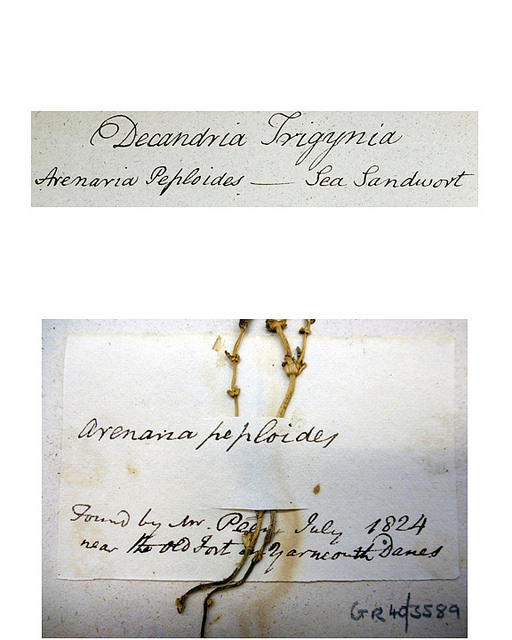 Decandria Trigynia
Arenaria Peploides — Sea Sandwort
Arenaria peploides
Found by Mr. July 1824
near the old Fort on Yarmouth Danes
GR 40/5589